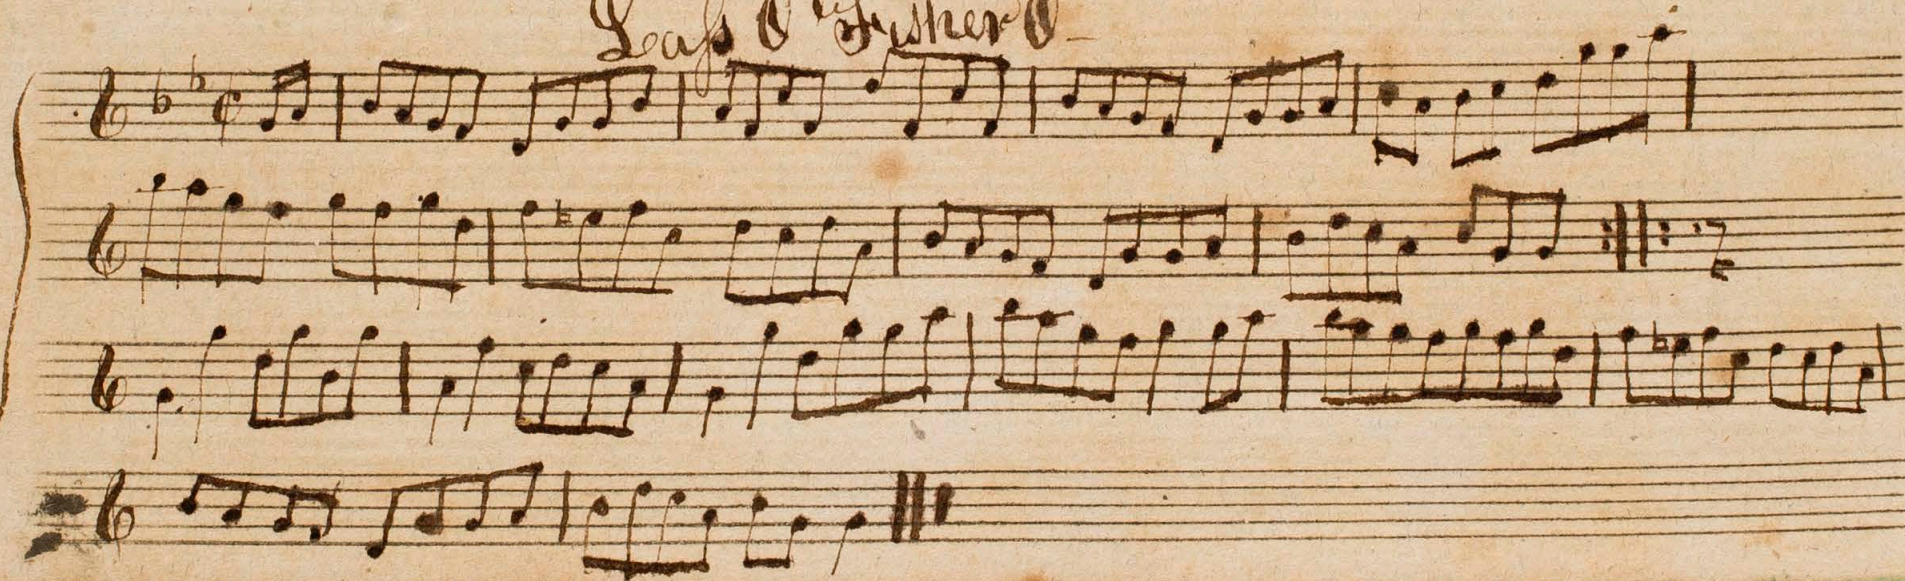 Lass O Fisher O